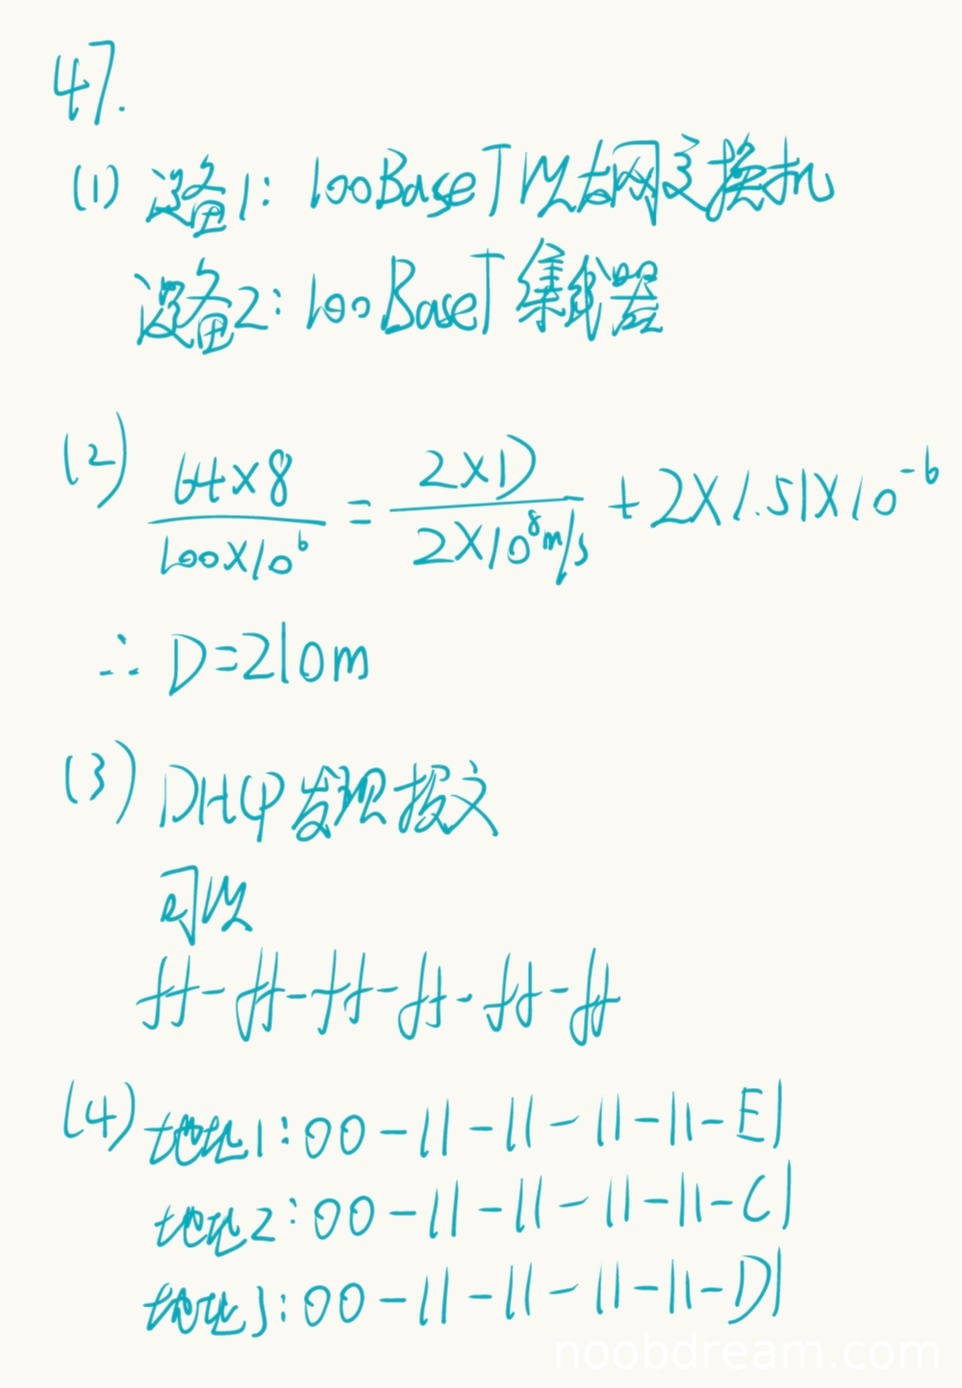 47.
(1) 设备1: 100BaseT以太网交换机
设备2: 100BaseT集线器
(2) 64×8/100×10⁶ = 2×D/2×10⁸m/s + 2×1.51×10⁻⁶
∴ D=210m
(3) DHCP发现报文
可以
ff-ff-ff-ff-ff-ff
(4) 地址1: 00-11-11-11-11-E1
地址2: 00-11-11-11-11-C1
地址3: 00-11-11-11-11-D1
noobdream.com